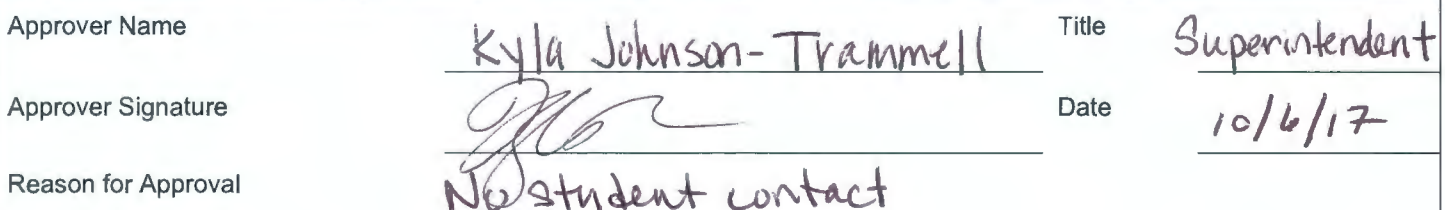 Approver Name Kyla Johnson-Trammell Title Superintendent
Approver Signature Date 10/6/17
Reason for Approval No student contact